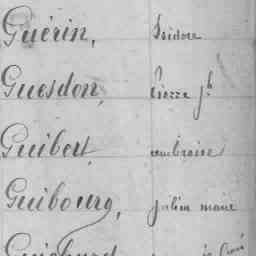 Guérin, Isidore
Guesdon, Pierre Jh
Guibert, ambroise
Guibourg, julien marie